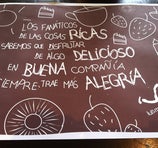 ¡ LOS FANÁTICOS
DE LAS COSAS RICAS
SABEMOS QUE DISFRUTAR
DE ALGO DELICIOSO
EN BUENA COMPAÑÍA
SIEMPRE TRAE MÁS
ALEGRÍA